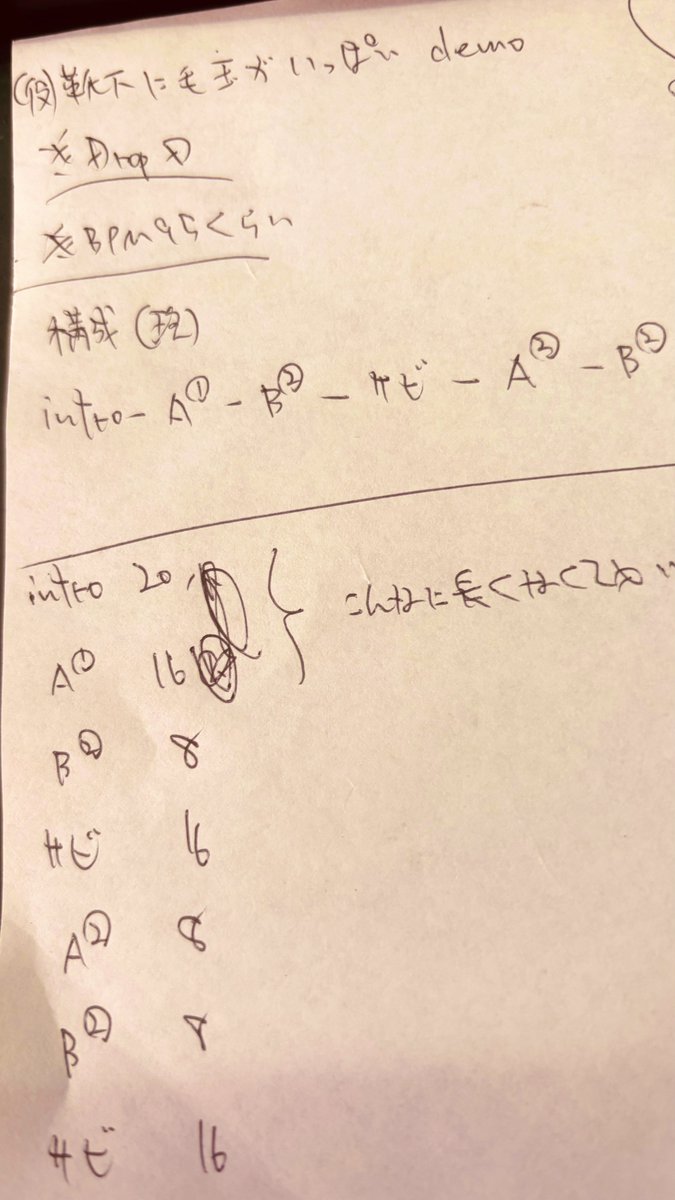 (仮)靴下に毛玉がいっぱい demo
※Drop D
※BPM95くらい
構成(現)
intro - A① - B② - サビ - A② - B②
intro 20
こんなに長くなくてもい
A① 16
B② 8
サビ 16
A② 8
B② 8
サビ 16